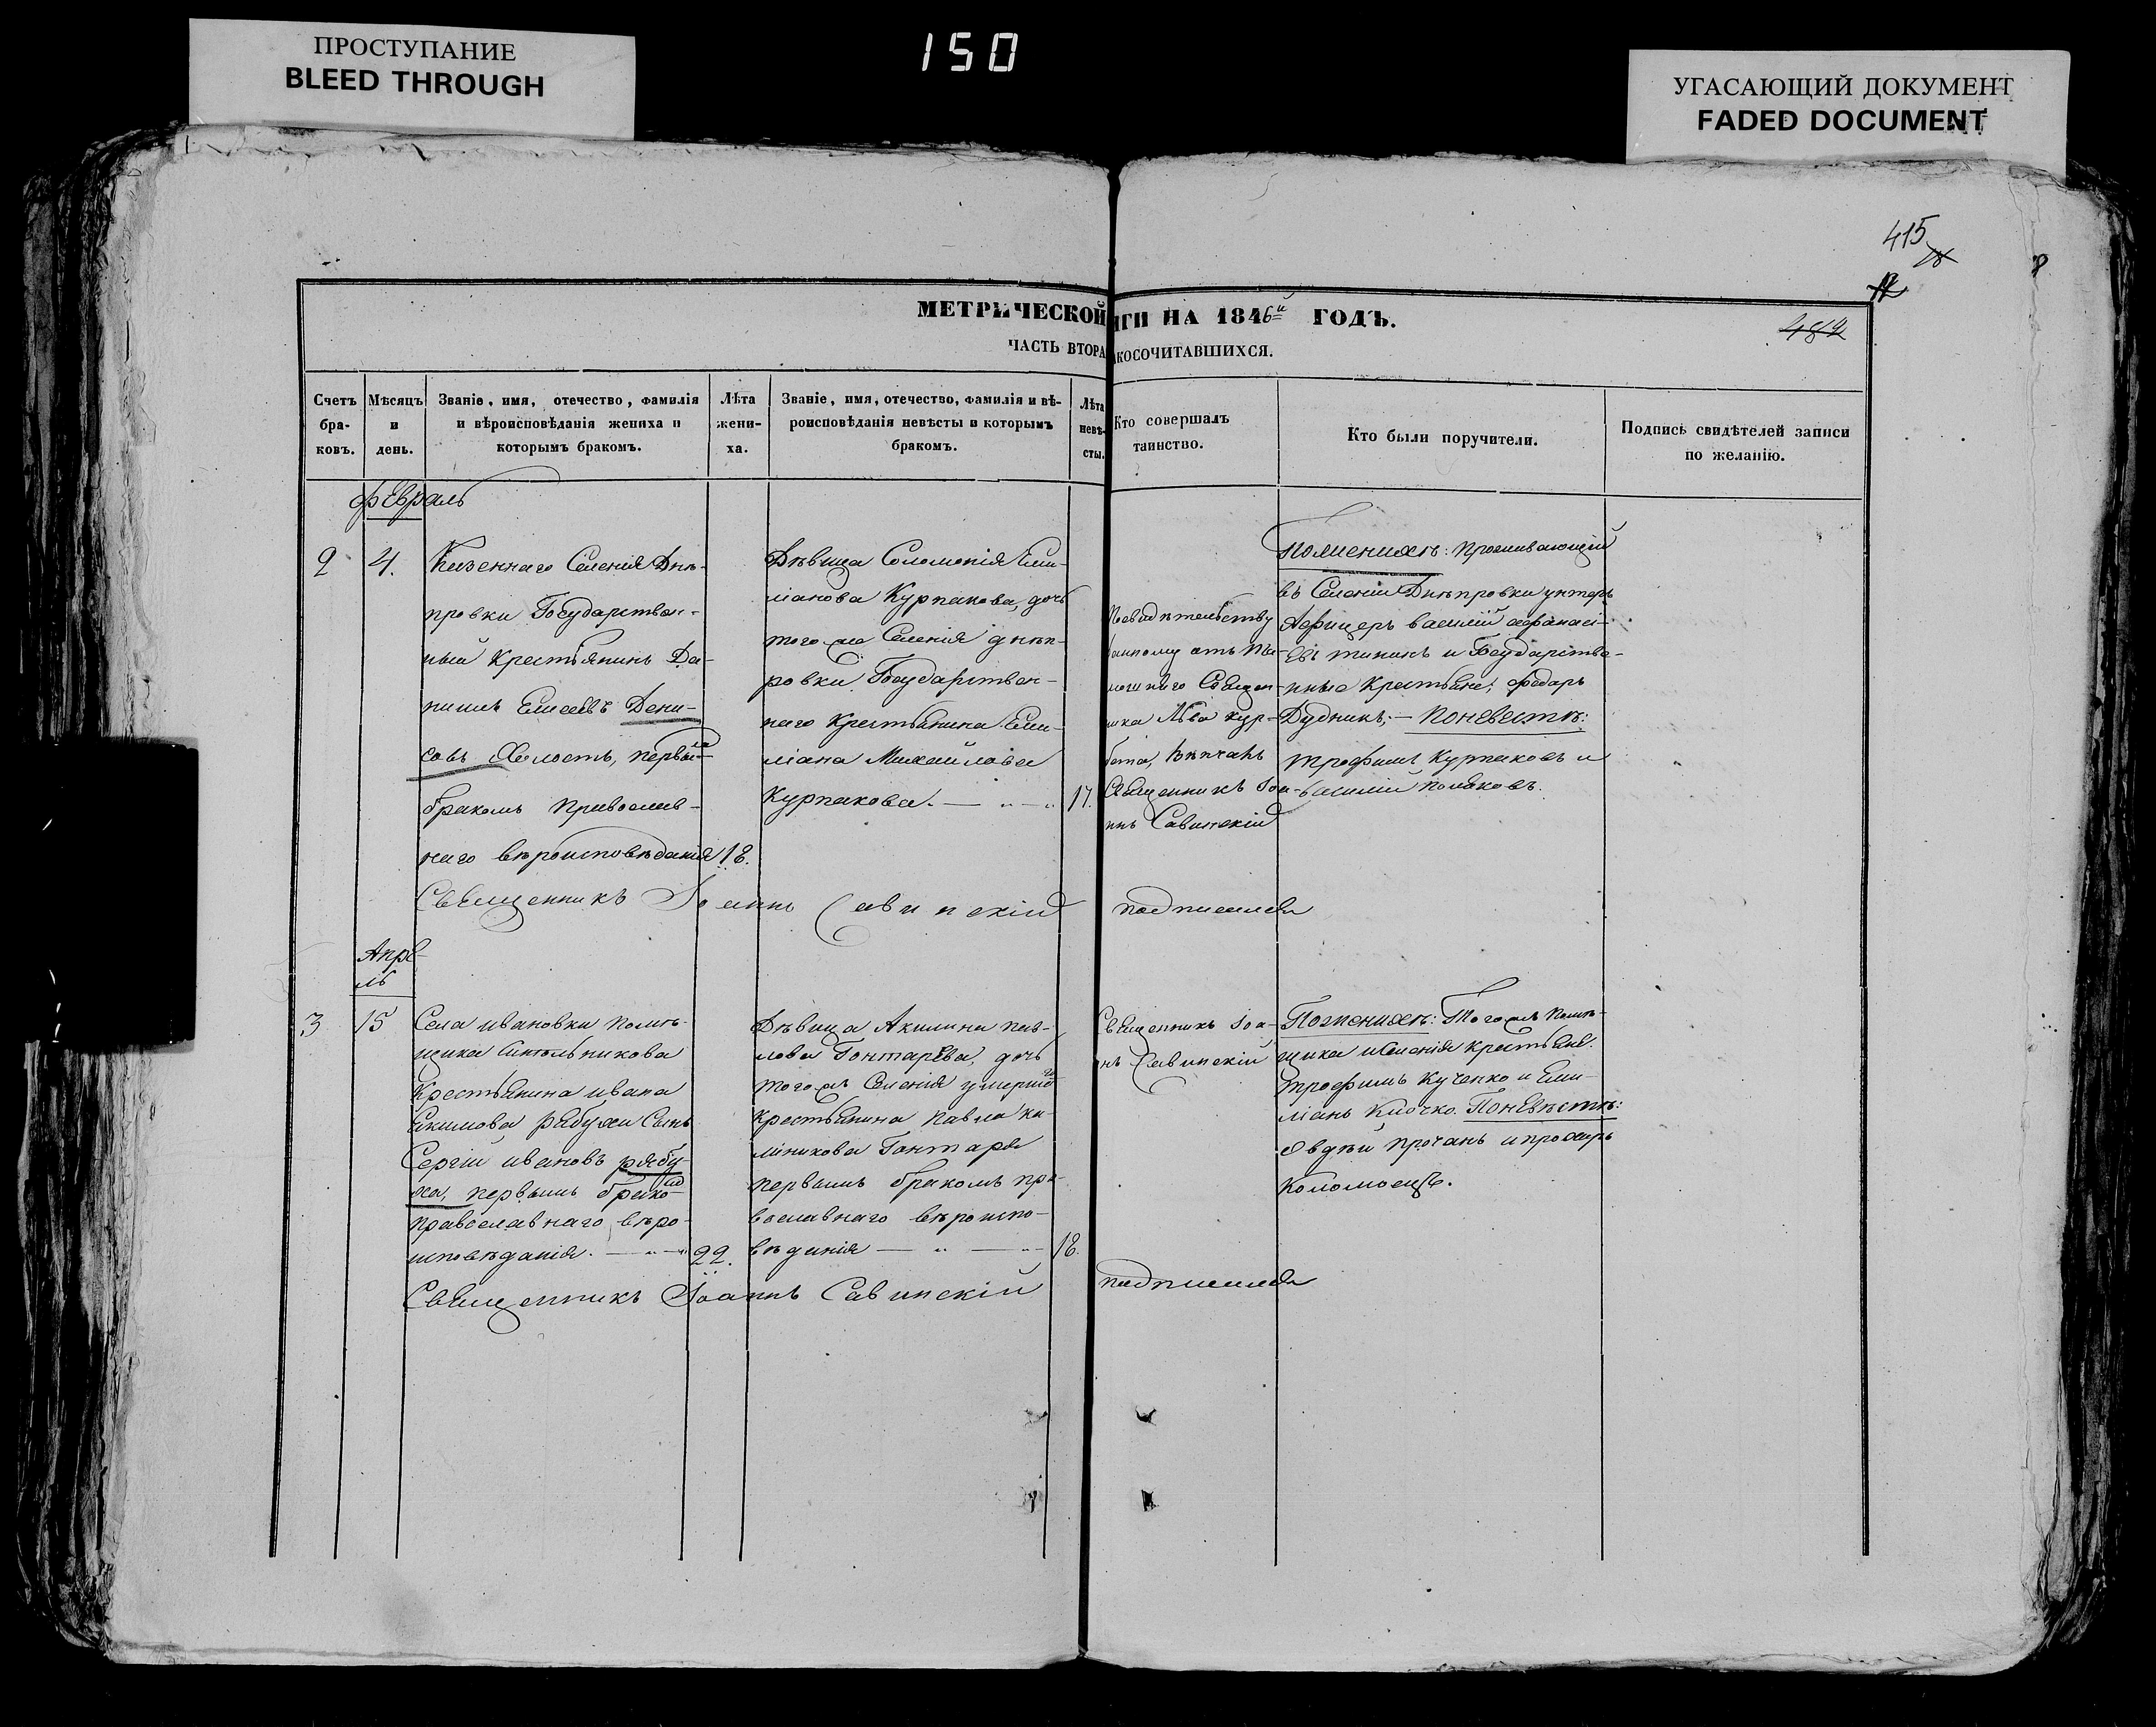 ПРОСТУПАНИЕ
BLEED THROUGH
150
УГАСАЮЩИЙ ДОКУМЕНТ
FADED DOCUMENT
415
482
МЕТРИЧЕСКОЙ
ИГИ НА 1846й ГОДЪ.
ЧАСТЬ ВТОРА
КОСОЧИТАВШИХСЯ.
Счетъ
бра-
ковъ.
Мѣсяцъ
и
день.
Званіе, имя, отечество, фамилія
и вѣроисповѣданія жениха и
которымъ бракомъ.
Лѣта
жени-
ха.
Званіе, имя, отечество, фамилія и вѣ-
роисповѣданія невѣсты и которымъ
бракомъ.
Лѣта
невѣ-
сты.
Кто совершалъ
таинство.
Кто были поручители.
Подпись свидѣтелей записи
по желанію.
Февраль
2
4.
Казеннаго Селенія Днѣ-
провки Государствен-
ный Крестьянинъ Да-
нишъ Елисеевъ Дени-
совъ Холостъ, первымъ
бракомъ православ-
наго вѣроисповѣданія
18.
Дѣвица Соломонія Еми-
ліанова Курпакова, дочь
того же Селенія днѣп-
ровки Государствен-
наго крестьянина Еми-
ліана Михайлова
Курпакова. — " — "
17.
По свидѣтельству
данному отъ та-
мошняго Священ-
ика Льва Кур-
бета, Вѣнчанъ
Священникъ Іоа-
ннъ Савинскій
По женихѣ: проживающій
въ Селеніи Днѣпровки унтеръ
Афицеръ василій афанасі-
евъ и Государстве-
нные Крестьяне, федоръ
Дудникъ; — По невестѣ:
трофимъ Курпаковъ и
василій поляковъ.
Священникъ Іоаннъ Савинскій подписался
Апре-
ль
3
15
Села ивановки помѣ-
щика Синельникова
Крестьянина ивана
Екимова рябухи Сынъ
Сергій ивановъ рябу-
ха, первымъ брако-
православнаго вѣро-
исповѣданія. — " — "
22.
Дѣвица Акилина пав-
лова Гонтарева, дочь
того же Селенія умершаго
крестьянина павла
Гонтаря
первымъ бракомъ пра-
вославнаго вѣроиспо-
вѣданія — " — "
18.
Священникъ Іоа-
нъ Савинскій
По женихѣ: Того же помѣ-
щика имѣнія крестьяне.
трофимъ Кученко и Еми-
ліанъ Клочко. По невѣстѣ:
Овдѣй прочанъ и прохоръ
Коломоецъ.
Священникъ Іоаннъ Савинскій подписался